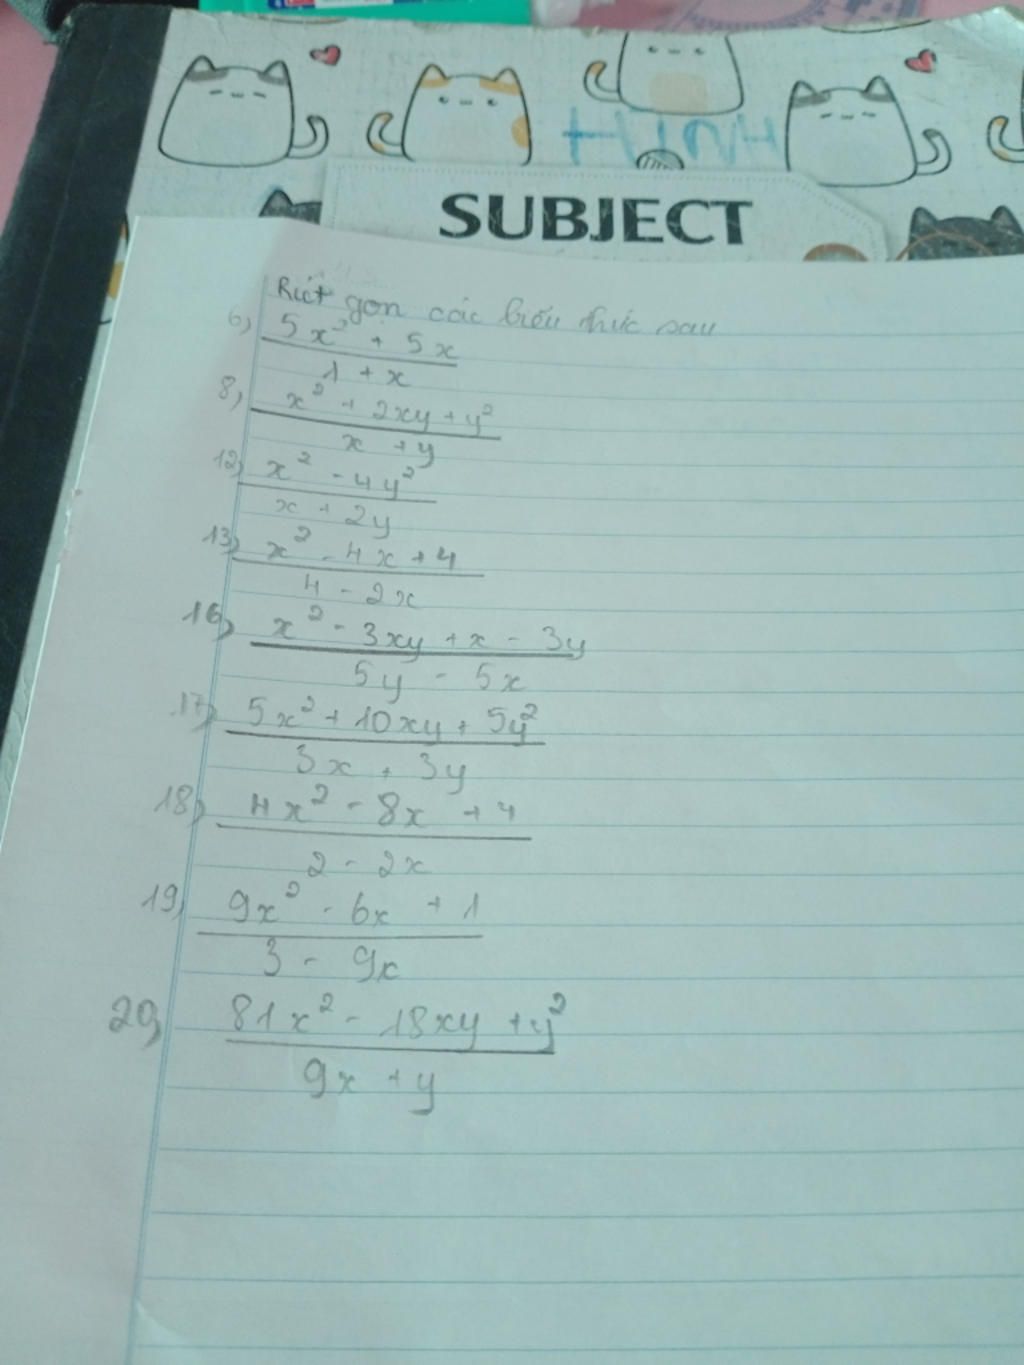 HINH
SUBJECT
Rút gọn các biểu thức sau
6) 5x² + 5x
1 + x
8) x² + 2xy + y²
x + y
12) x² - 4y²
x + 2y
13) x² - 4x + 4
4 - 2x
16) x² - 3xy + x - 3y
5y - 5x
17) 5x² + 10xy + 5y²
3x + 3y
18) 4x² - 8x + 4
2 - 2x
19) 9x² - 6x + 1
3 - 9x
20) 81x² - 18xy + y²
9x + y